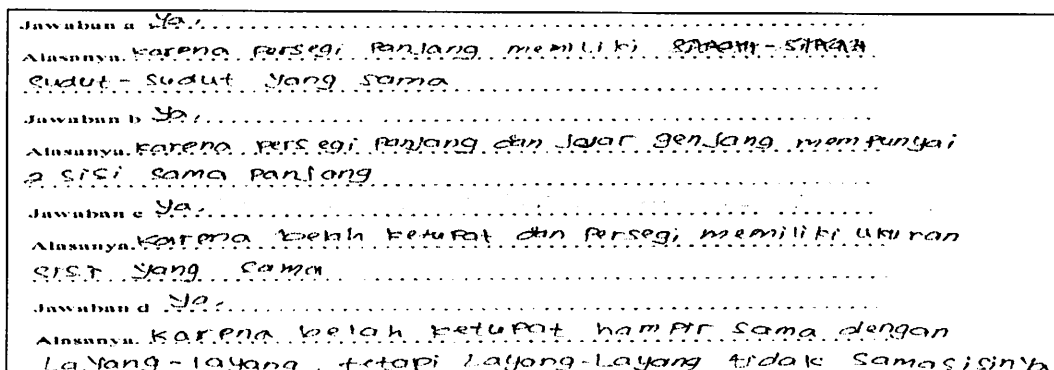 Jawaban a Ya,
Alasannya. Karena Persegi Panjang memiliki
sudut-sudut yang sama
Jawaban b Ya,
Alasanya. Karena persegi Panjang dan Jajar genjang mempunyai
2 sisi sama panjang
Jawaban c Ya,
Alasanya. Karena belah ketupat dan Persegi memiliki ukuran
sisi yang sama
Jawaban d Ya,
Alasanya. Karena belah ketupat hampir sama dengan
Layang-layang, tetapi Layang-Layang tidak sama sisinya